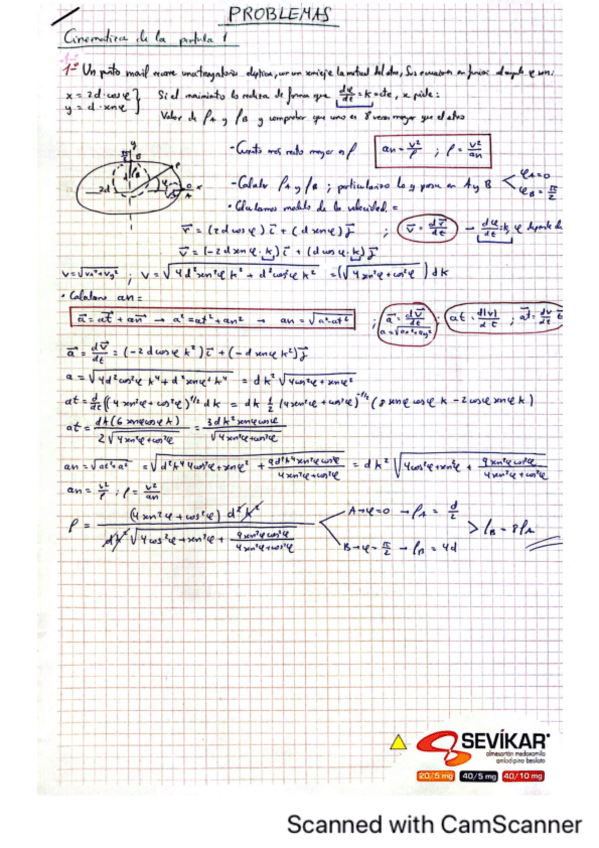 PROBLEMAS
Cinematica de la partícula 1
1º Un punto movil recorre una trayectoria eliptica, con un semieje la mitad del otro, Sus ecuaciones en funcion del angulo φ son:
x = 2d·cosφ } Si el movimiento lo realiza de forma que dφ/dt = k = cte, se pide:
y = d·senφ } Valor de ρA y ρB y comprobar que uno es 8 veces mayor que el otro
- Cuanto más recto mayor es ρ an = v²/ρ ; ρ = v²/an
- Calculo ρA y ρB; particularizo la φ para en A y B < φA=0 φB = π/2
• Calculamos modulo de la velocidad =
r⃗ = (2d cosφ) i⃗ + (d senφ) j⃗ ; v⃗ = dr⃗/dt → dφ/dt = k, φ depende de
v⃗ = (-2d senφ·k) i⃗ + (d cosφ·k) j⃗
v = √vx²+vy² ; v = √4d²sen²φ k² + d²cos²φ k² = (√4sen²φ + cos²φ) dk
• Calculamos an =
a⃗ = at⃗ + an⃗ → a² = at² + an² → an = √a²-at² ; a⃗ = dv⃗/dt a = √ax²+ay² ; at = d|v|/dt ; at⃗ = dv/dt t⃗
a⃗ = dv⃗/dt = (-2d cosφ k²) i⃗ + (-d senφ k²) j⃗
a = √4d²cos²φ k⁴ + d²sen²φ k⁴ = dk² √4cos²φ + sen²φ
at = d/dt (4sen²φ + cos²φ)^1/2 dk = dk 1/2 (4sen²φ + cos²φ)^-1/2 (8 senφ cosφ k - 2cosφ senφ k)
at = dk(6 senφcosφ k) / 2√4sen²φ+cos²φ = 3dk² senφcosφ / √4sen²φ+cos²φ
an = √at²+a² = √d²k⁴ 4cos²φ + sen²φ + 9d²k⁴ sen²φcos²φ / 4sen²φ+cos²φ = dk² √4cos²φ + sen²φ + 9sen²φcos²φ / 4sen²φ+cos²φ
an = v²/ρ ; ρ = v²/an
ρ = (4sen²φ + cos²φ) d²k² / dk² √4cos²φ + sen²φ + 9sen²φcos²φ / 4sen²φ+cos²φ < A→φ=0 → ρA = d/2 B→φ=π/2 → ρB = 4d > ρB = 8ρA
SEVÍKAR®
olmesartán medoxomilo
amlodipino besilato
20/5 mg 40/5 mg 40/10 mg
Scanned with CamScanner